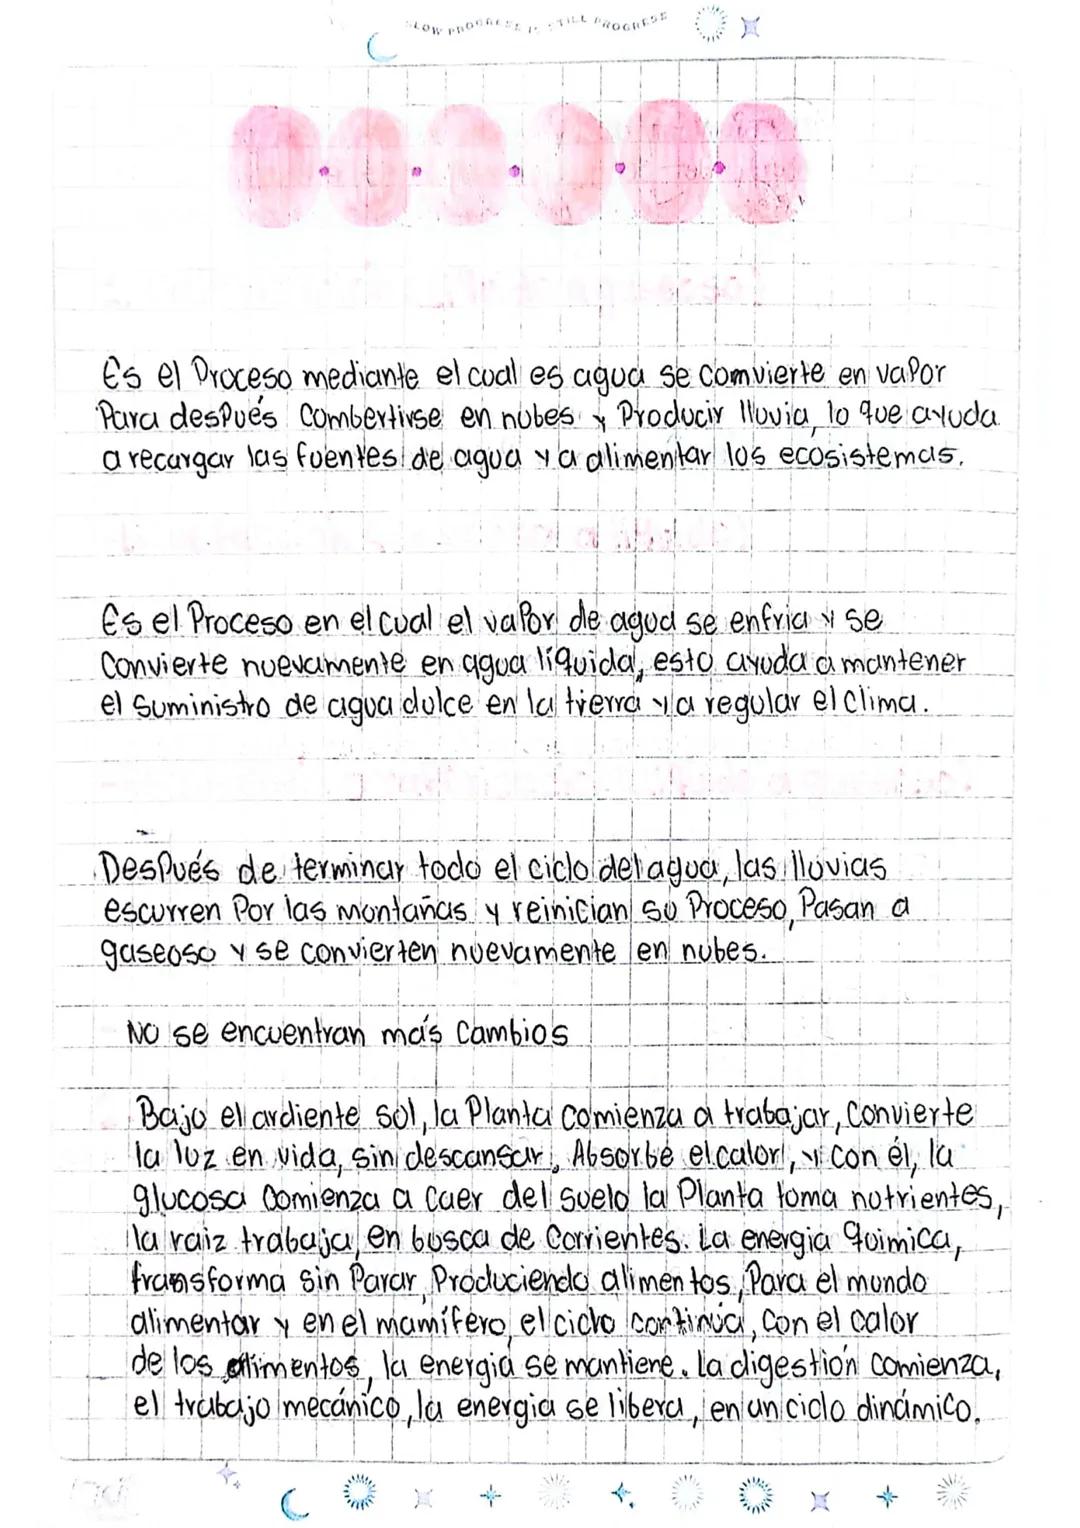 SLOW PROGRESS IS STILL PROGRESS
Es el Proceso mediante el cual es agua se comvierte en vapor
Para después Combertirse en nubes y Producir lluvia, lo que ayuda
a recargar las fuentes de agua y a alimentar los ecosistemas.
Es el Proceso en el cual el vapor de agua se enfria y se
Convierte nuevamente en agua líquida, esto ayuda a mantener
el suministro de agua dulce en la tierra y a regular el clima.
Después de terminar todo el ciclo del agua, las lluvias
escurren Por las montañas y reinician su Proceso, Pasan a
gaseoso y se convierten nuevamente en nubes.
No se encuentran más Cambios
Bajo el ardiente sol, la Planta comienza a trabajar, Convierte
la luz en vida, sin descansar. Absorbe el calor, y con él, la
glucosa Comienza a caer del suelo la Planta toma nutrientes,
la raiz trabaja, en busca de Corrientes. La energia química,
transforma sin Parar, Produciendo alimentos, Para el mundo
alimentar y en el mamífero, el ciclo continúa, Con el calor
de los alimentos, la energía se mantiene. La digestión comienza,
el trabajo mecánico, la energia se libera, en un ciclo dinámico.